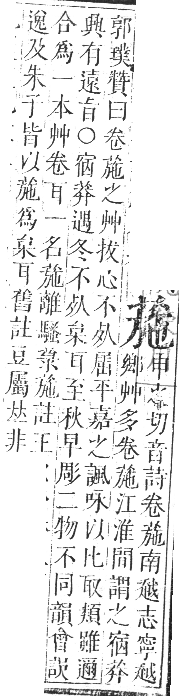 葹
申支切音詩卷葹南越志寧越
鄉艸多卷葹江淮間謂之宿莽
郭璞贊曰卷葹之艸拔心不死屈平嘉之諷咏以比取類雖邇
興有遠旨○宿莽遇冬不死枲耳至秋早彫二物不同韻會誤
合為一本艸卷耳一名葹離騷菉葹註王
逸及朱子皆以葹為枲耳舊註豆屬𠀤非